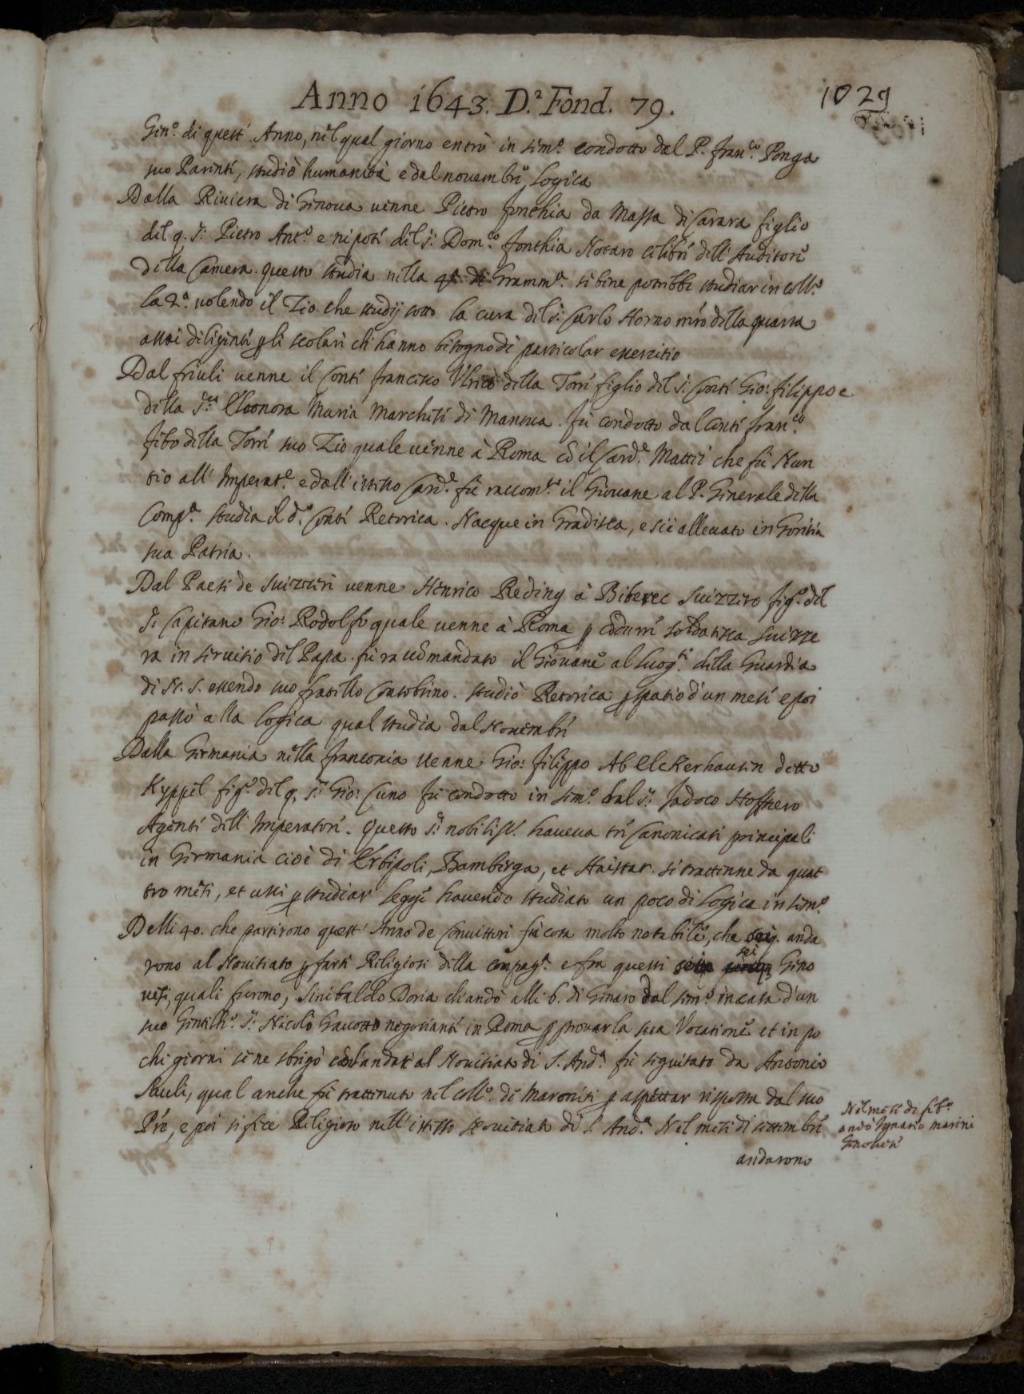 Anno 1643. D.ª Fond. 79.
1029
Gin.º di quest' Anno, nel qual giorno entrò in sem.º condotto dal P. Fran.co Ponga
suo Parente, studiò humanità e dal novembre, Logica
Dalla Riviera di Genova venne Pietro fonthia da Massa di Carara figlio
del q. S.r Pietro Ant.º e nipote del S.r Dom.co fonthia Notaro celebre dell' Auditore
della Camera questo studia nella Gramm.ª se bene potrebbe studiar in coll.º
la 2.ª volendo il Zio che studij sotto la cura del S. Carlo Horno mro della quarta
assai diligente p li scolari ch' hanno bisogno di particolar essercitio
Dal friuli venne il Conte francesco Ulrico della Torre figlio del S. Conte Gio: filippo e
della S.ra Eleonora Maria Marchese di Mantua. fu condotto dal Conte fran.co
febo della Torre suo Zio quale venne à Roma cõ il Card. Mattei che fu Nun
tio all' Imperat.e e dall' istesso Card. fu raccom.to il Giovane al P. Generale della
Comp.ª studia il d.º Conte Retorica. Nacque in Gradisca, e si è allevato in Goritia
sua Patria.
Dal Paese de Suizzeri venne Henrico Reding à Biberec Suizzero fig.º del
S. Capitano Gio: Rodolfo quale venne à Roma p cõdurre soldatesca Suizze
ra in servitio del Papa. fu raccõmandato il Giovane al Luog.te della Guardia
di N. S. essendo suo fratello Consobrino. studiò Retorica p spatio d'un mese e poi
passò alla Logica qual studia dal Novembre
Dalla Germania nella franconia venne Gio: filippo Ab Elckerhausen detto
Kyppel fig.º del q. S.r Gio: Cuno fu condotto in sem.º dal S.r Jadoco Hoffnero
Agente dell' Imperatore. Questo S.r nobiliss.º haveva tre Canonicati principali
in Germania cioè di Erbipoli, Bamberga, et Haistat. si trattenne da quat
tro mesi, et uscì p studiar leggi havendo studiato un poco di Logica in sem.º
Delli 40. che partirono quest' Anno de Convittori fu cosa molto notabile, che seig. anda
rono al Novitiato p farsi Religiosi della compag.ª e fra questi sei Geno
vesi, quali furono, Sinibaldo Doria ch' andò alli 6. di Genaro dal sem.º in casa d'un
suo Gentilh.º S.r Nicolò Gavotto negotiante in Roma p provar la sua Vocatione et in po
chi giorni se ne sbrigò cõ andar al Novitiato di S. And.ª fu seguitato da Antonio
Pauli, qual anche fu trattenuto nel coll.º di Maroniti p aspettar risposta dal suo
Pre, e poi si fece Religioso nell' istesso Novitiato di S. And.ª Nel mese di settembre
andarono
Nel mese di feb.º
andò Ignatio marini
Genovese